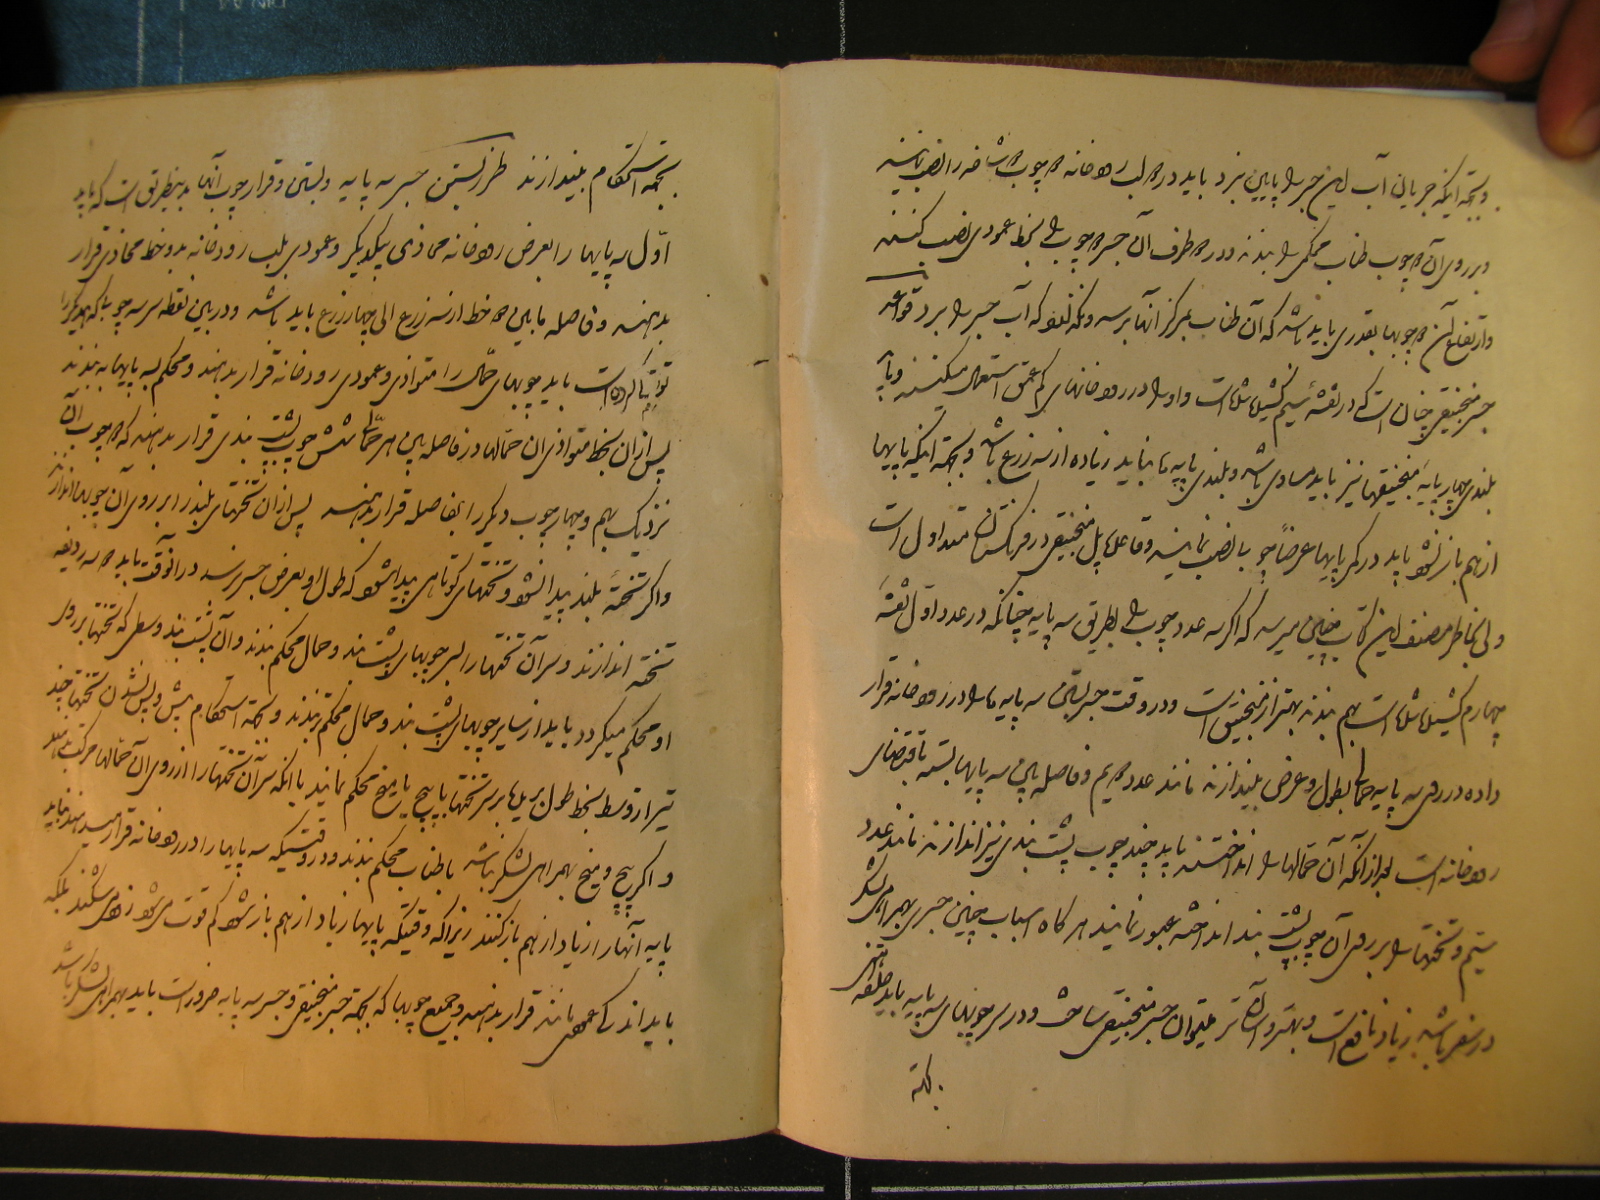 و بجهة اینکه جریان آب این جسر را پایین نبرد باید در هر لب رودخانه دو چوب شاخه را نصب نمایند
و بر روی آن دو چوب طناب محکمی را ببندند و در هر طرف آن جسر دو چوب را بخط عمودی نصب کنند
و ارتفاع آن دو چوبها بقدری باید باشد که آن طناب بمرکز آنها برسد و نگذارد که آب جسر را ببرد قواعد
جسر منجنیقی چنان است که در نقشه سیم کشیده شده است و او را در رودخانهای کم عمق استعمال میکنند و پا
بلندی چهار پایه منجنیقها نیز باید مساوی باشد و بلندی پایه ها نباید زیاده از سه زرع باشد و بجهة اینکه پایها
از هم باز نشود باید در کمر پایها عرضاً چوب نصب نمایند و قاعده پل منجنیقی در فرنگستان متداول است
ولی بخاطر مصنف این کتاب چنین میرسد که اگر سه عدد چوب را بطریق سه پایه چنانکه در عدد اول نقشه
چهارم کشیده شده است بهم ببندند بهتر از منجنیق است و در وقت جسر بستن سه پایه ها را در رودخانه قرار
داده در روی سه پایه حمال بطول و عرض بیندازند مانند عدد دویم و فاصله بین سه پایها بسته باقتضای
رودخانه است بعد از آنکه آن حمالها را انداختند باید چند چوب پشت بندی نیز اندازند مانند عدد
سیم و تختها را بر روی آن چوب پشت بند انداخته عبور نمایند هر گاه اسباب چنین جسری بهمراه لشکر
در سفر باشد زیاد نافع است و بهتر و آسان تر میتوان جسر منجنیقی ساخت و در سر چوبهای سه پایه باید حلقه آهنی
بجهة
بجهة استحکام بیندازند طرز بستن جسر سه پایه و بستن و قرار چوب آنها بدینطریق است که باید
اوّل سه پایها را بعرض رودخانه محاذی یکدیگر و عمودی بلب رودخانه بدو خط محاذی قرار
بدهند و فاصله مابین دو خط از سه زرع الی چهار زرع باید باشد و در بین نقطه سر سه چوب که یکدیگر را
باید چوبهای حمّال را متوازی و عمودی رودخانه قرار بدهند و محکم بسه پایها ببندند
پس از آن بخط متوازی آن حمّالها در فاصله بین هر حمّال شش چوب پشت بندی قرار بدهند که دو چوب آن
نزدیک بهم و چهار چوب دیگر را بفاصله قرار بدهند پس از آن تختهای بلند را بر روی آن چوبها اندازند
و اگر تختهٔ بلند پیدا نشود و تختهای کوتاهی پیدا شود که طول او بعرض جسر نرسد در آنوقت باید دو سه ردیفه
تخته اندازند و سر آن تختها را بسر چوبهای پشت بند و حمال محکم ببندند و آن پشت بند وسطی که تختها بر روی
او محکم میگردد باید از سایر چوبهای پشت بند و حمال محکم ببندند و بجهة استحکام پیش و پس نشدن تختها چند
تیر از وسط بخط طول پل بر سر تختها با پیچ یا میخ محکم نمایند یا آنکه سر آن تختها را از روی آن حمّالها حرکت ندهد
و اگر پیچ و میخ بهمراهی لشکر نباشد با طناب محکم ببندند و در وقتیکه سه پایها را در رودخانه قرار میدهند نباید
پایه آنها را زیاد از هم باز کنند زیرا که وقتیکه پایها زیاد از هم باز شود کم قوت میشود زود میشکند بلکه
باید اندک عمودی مانند قرار بدهند و جمیع چوبها که بجهة جسر منجنیقی و جسر سه پایه ضرور است باید بهمراهی لشکر باشد